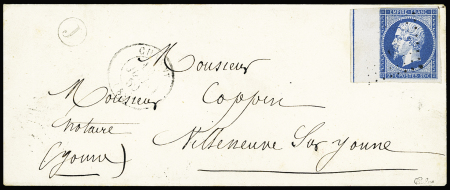 EMPIRE FRANC
Monsieur
Monsieur Coppin
notaire Villeneuve Sur yonne
(yonne)